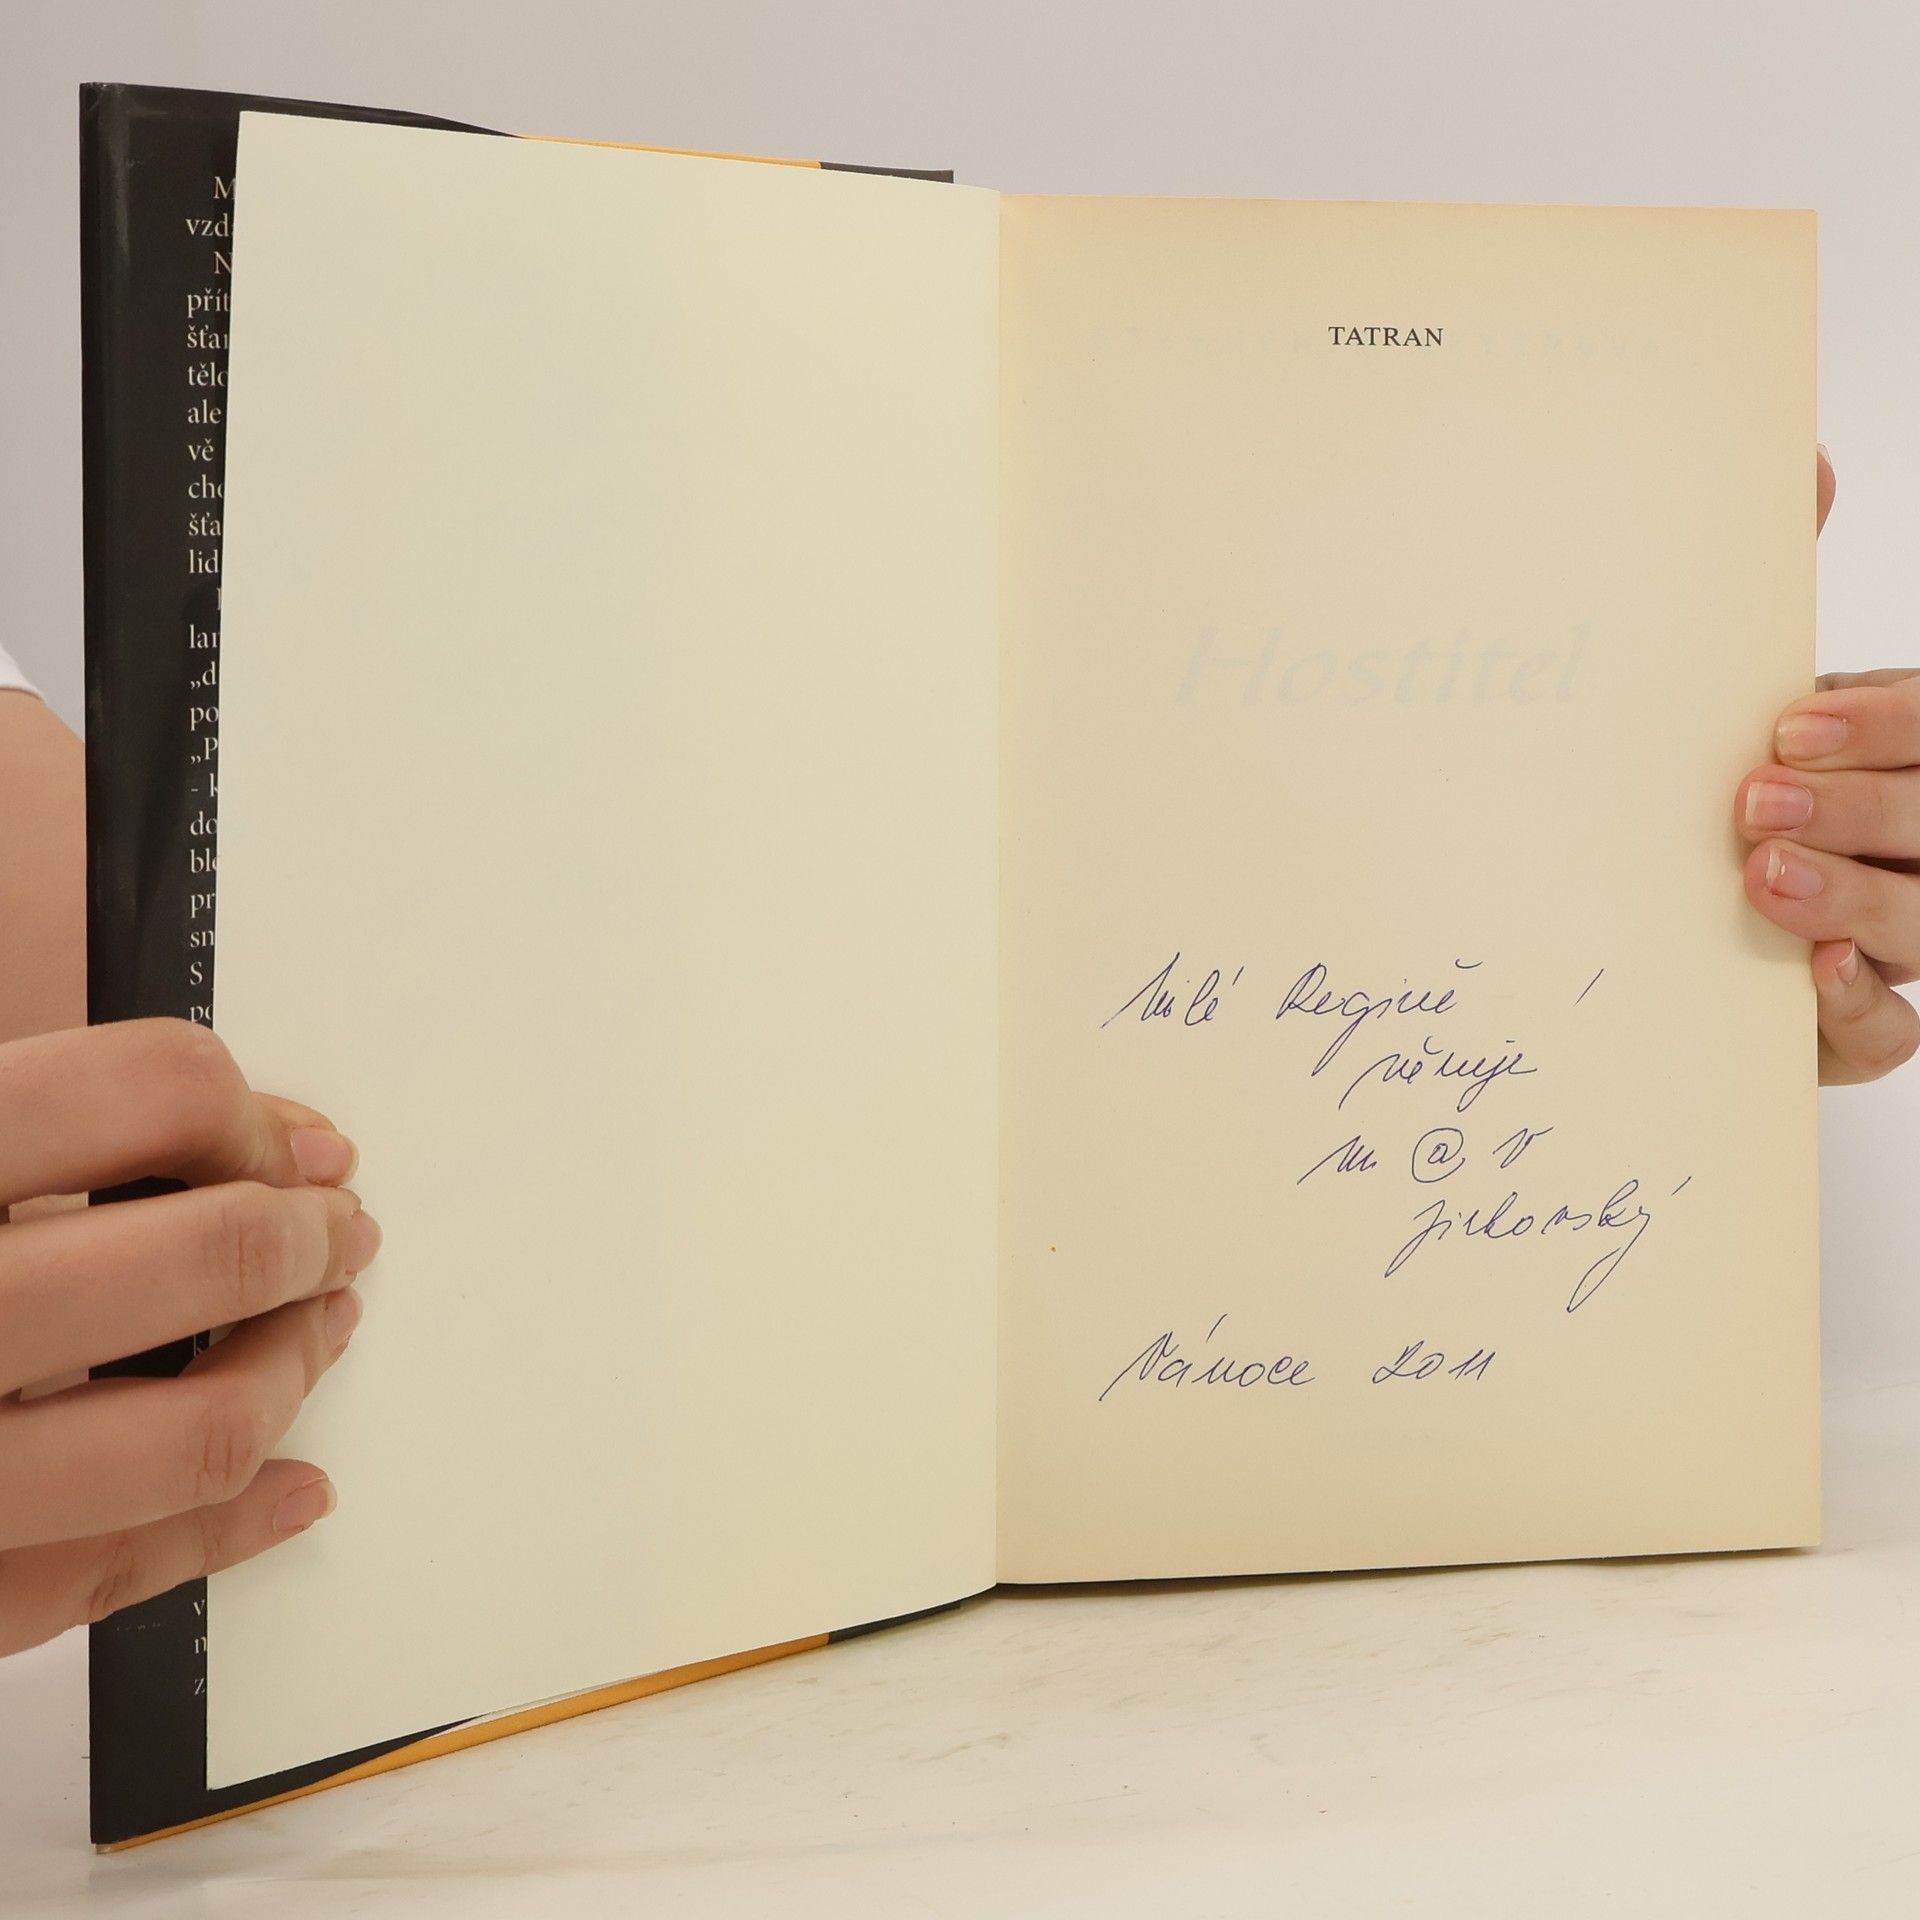 M
vzd
N
přít
šťar
tělo
ale
vě
cho
šťa
lid
lar
„d
po
„P
- k
do
blo
pr
sn
S
po
k
v
n
z
TATRAN
Hostitel
Milé Regině
věnuje
m @ v
Jirkovský
Vánoce 2011